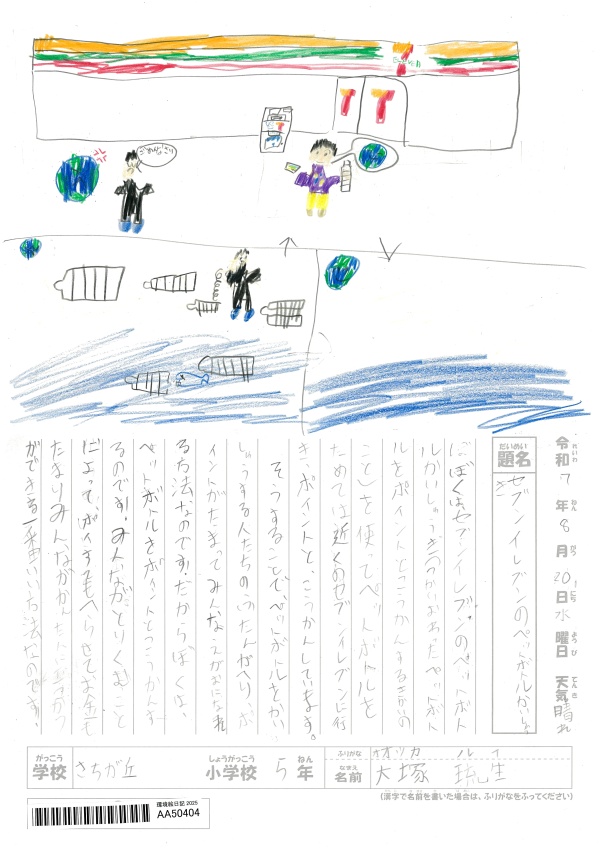 ごめんなさい
令和7年8月20日水曜日 天気 晴れ
れいわ ねん がつ にち ようび てんき
だいめい
題名
セブンイレブンのペットボトルかいしゅうき
ぼくはセブンイレブンのペットボト
ルかいしゅうき
ペットボト
ルをポイントとこうかんするきかいの
こと)を使てペットボトルを
ためては近くのセブンイレブンに行
き、ポイントと、こうかんしています。
そうすることで、ペットボトルをかい
しゅうする人たちのふたんがへり、ポ
イントがたまってみんなえがおになれ
る方法なのです。だからぼくは、
ペットボトルをポイントとこうかんす
るのです。みんながとりくむこと
によって、ポイすてもへらせてお金も
たまりみんながかんたんに
ができる一番いい方法なのです。
がっこう
学校
さちが丘
しょうがっこう
小学校
5
ねん
年
ふりがな
オオツカ ルイ
なまえ
名前
大塚 琉生
(漢字で名前を書いた場合は、ふりがなをふってください)
環境絵日記 2025
AA50404